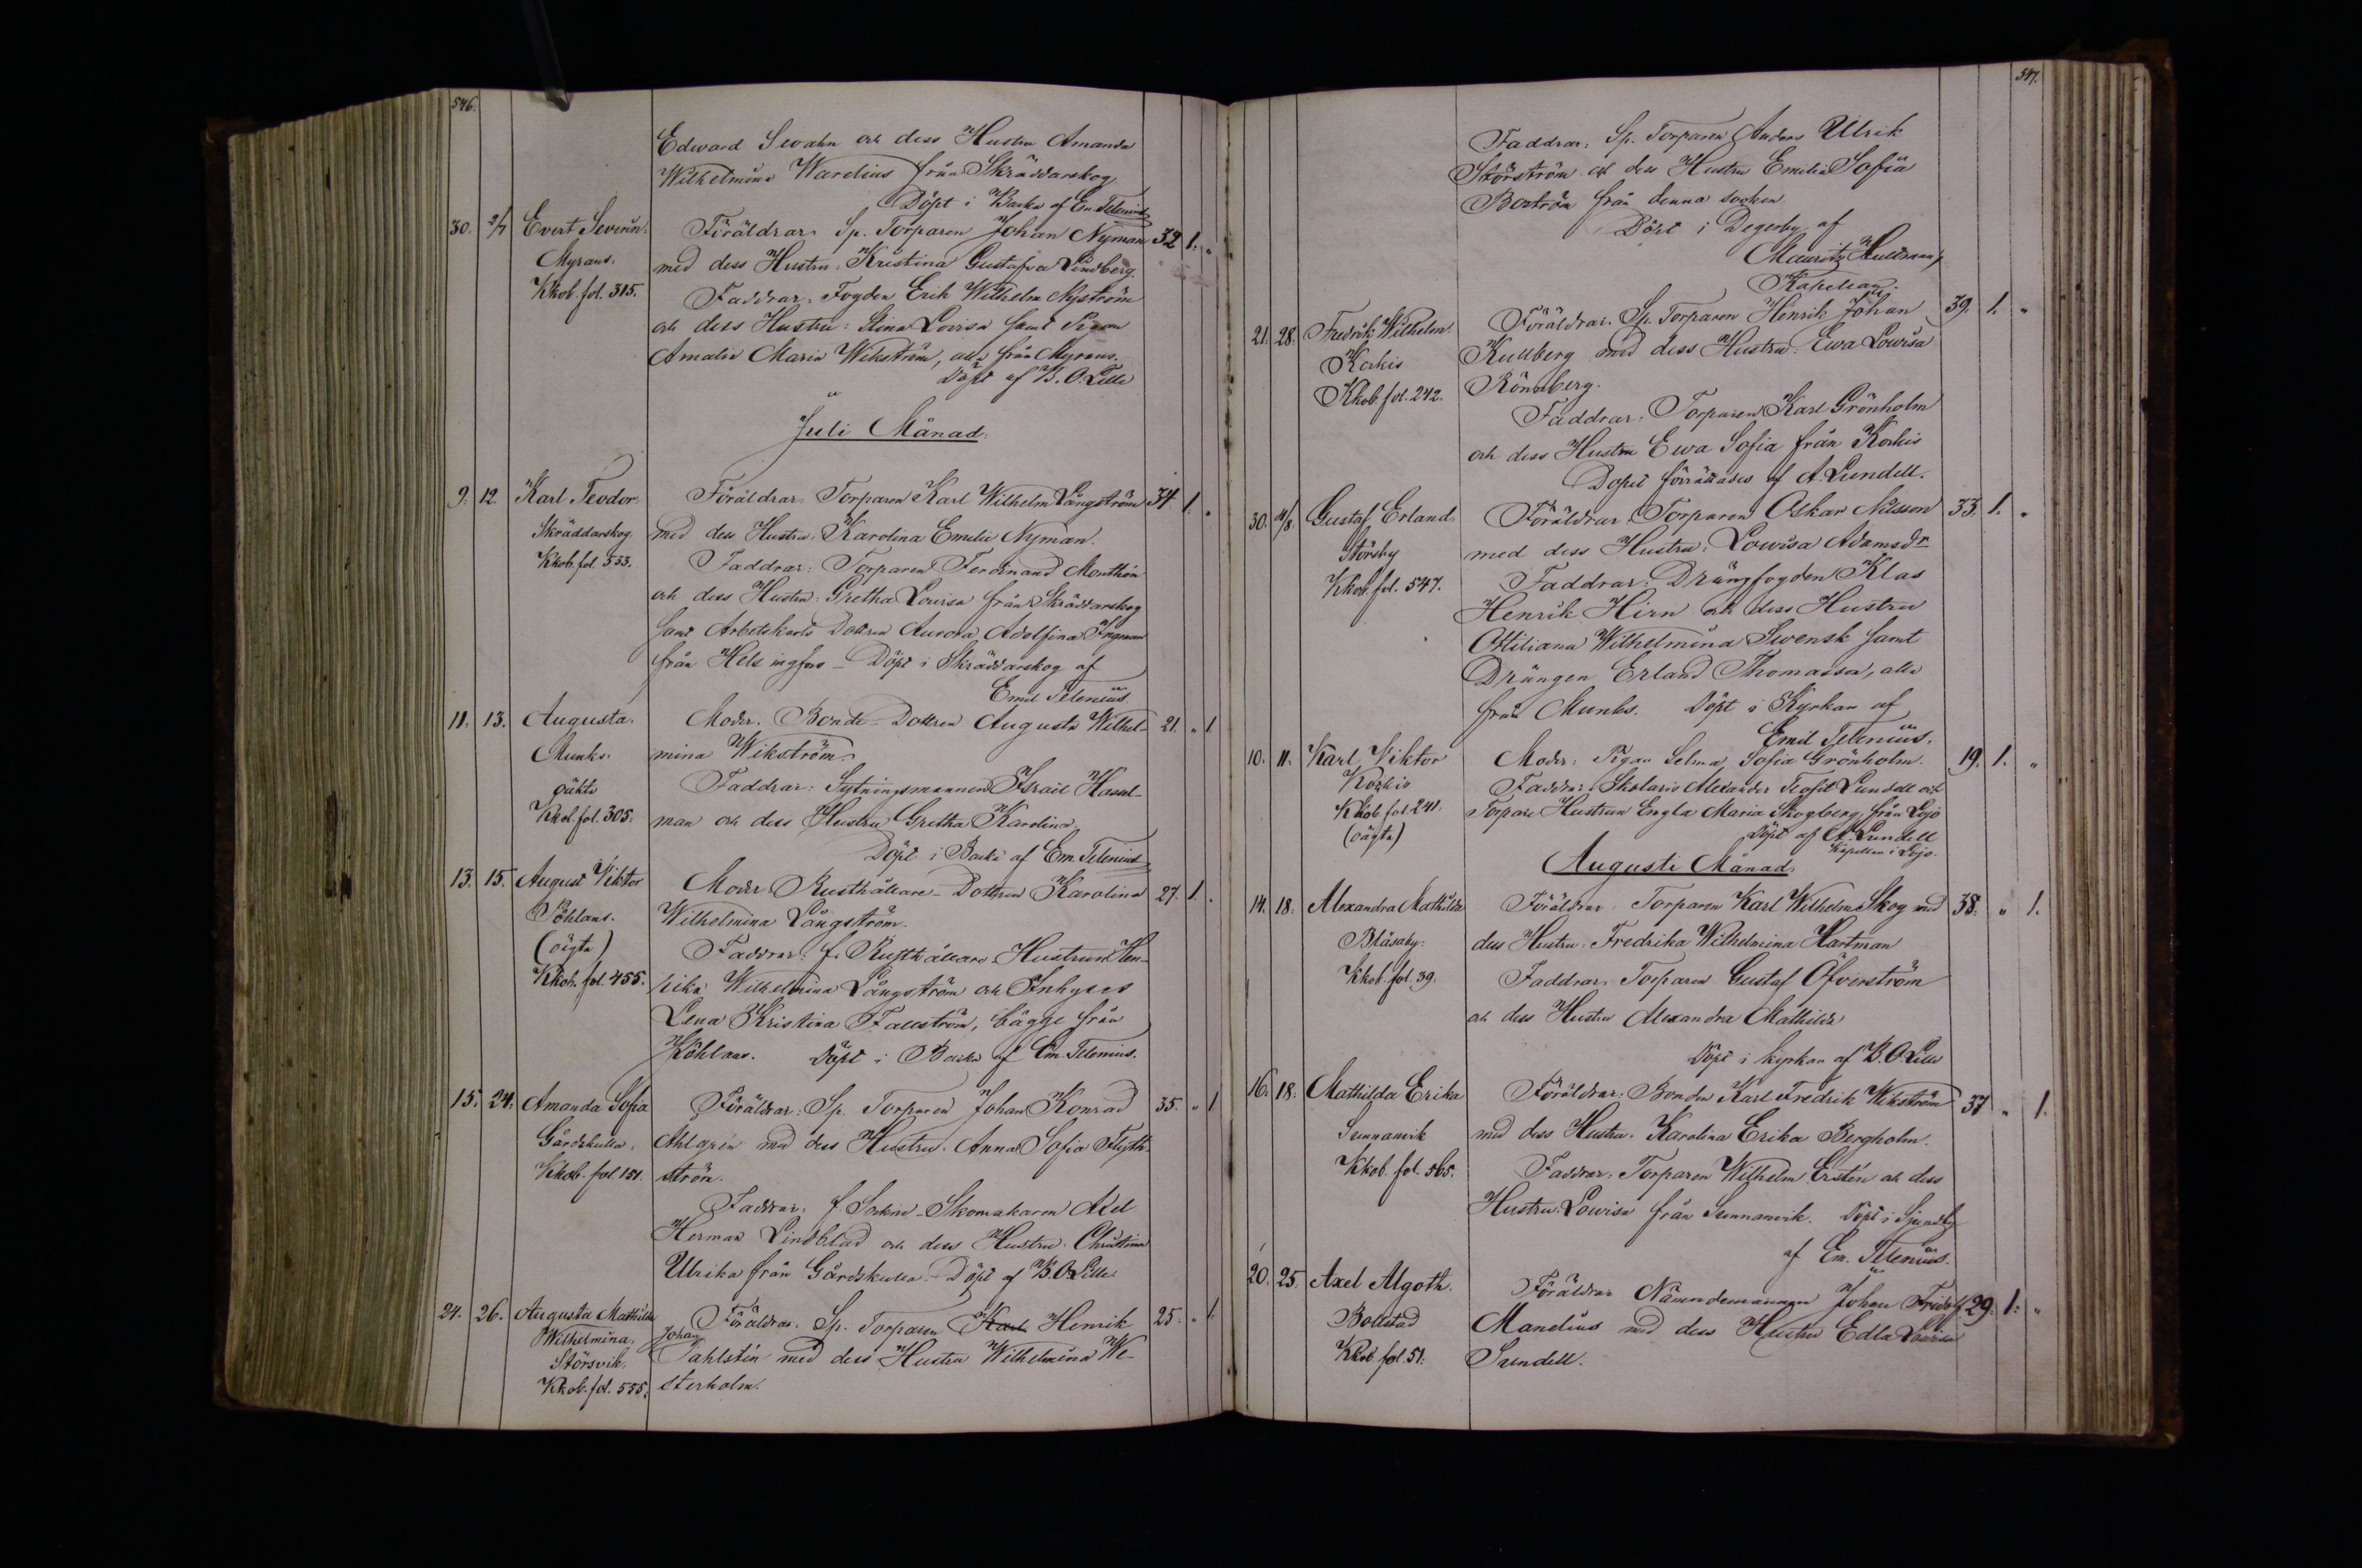 546.
Edward Sevahn och dess Hustru Amanda
Wilhelmina Warelius från Skräddarskog
Döpt i Backa af Em. Telenius
30. 2/7 Evert Severin. Föräldrar: Sp. Torparen Johan Nyman 32 1. "
Myrans. med dess Hustru: Kristina Gustafva Lindberg.
Kkob. fol. 315. Faddrar: Fogden Erik Wilhelm Nyström
och dess Hustru: Stina Lovisa samt Pigan
Amalia Maria Wikström, alla från Myrans.
Döpt af B. O. Lille
Juli Månad.
9. 12. Karl Teodor. Föräldrar: Torparen Karl Wilhelm Långström 34 1. "
Skräddarskog. med dess Hustru: Karolina Emilia Nyman.
Kkob. fol. 533. Faddrar: Torparen Ferdinand Monthén
och dess Hustru: Gretha Lovisa från Skräddarskog
samt Arbetskarls Dottren Aurora Adolfina Ingman
från Helsingfors – Döpt i Skräddarskog af
Emil Telenius
11. 13. Augusta. Moder: Bonde-Dottren Augusta Wilhel- 21. " 1
Munks. mina Wikström.
oäkta Faddrar: Sytningsmannen Israël Hassel-
Kkob. fol. 305. man och dess Hustru Gretha Karolina
Döpt i Backa af Em. Telenius
13. 15. August Viktor Moder: Rusthållare-Dottren Karolina 27. 1. "
Köhlans. Wilhelmina Långström.
(oägta) Faddrar: f. Rusthållare Hustrun Hen-
Kkob. fol. 455. rika Wilhelmina Långström och Inhyses
Lena Kristina Fallström, bägge från
Köhlans. Döpt i Backa af Em. Telenius.
15. 24. Amanda Sofia Föräldrar: Sp. Torparen Johan Konrad 35. " 1
Gårdskulla. Ahlgren med dess Hustru: Anna Sofia Flyth-
Kkob. fol. 151. ström.
Faddrar: f Sockne-Skomakaren Axel
Herman Lindblad och dess Hustru: Christina
Ulrika från Gårdskulla – Döpt af B. O. Lille
24. 26. Augusta Mathilda Föräldrar: Sp. Torparen Karl Henrik 25. " 1.
Wilhelmina, Johan
Störsvik. Tahlstén med dess Hustru Wilhelmina We-
Kkob. fol. 555. sterholm.
547.
Faddrar: Sp. Torparen Anders Ulrik
Störström och dess Hustru Emilia Sofia
Boström från denna socken.
Döpt i Degerby af
Mauritz Hultman,
Kapellan.
21. 28. Fredrik Wilhelm. Föräldrar: Sp. Torparen Henrik Johan 39. 1. "
Korkis Kullberg med dess Hustru: Ewa Lowisa
Kkob. fol. 242. Rönnberg.
Faddrar: Torparen Karl Grönholm
och dess Hustru Ewa Sofia från Korkis
Dopet förrättades af A. Lundell.
30. 4/8 Gustaf Erland Föräldrar: Torparen Oskar Nilsson 33. 1. "
Störsby med dess Hustru: Lowisa Adamsdr
Kkob. fol. 547. Faddrar: Drängfogden Klas
Henrik Hirn och dess Hustru
Ottiliana Wilhelmina Swensk samt
Drängen Erland Thomasson, alla
från Munks. Döpt i Kyrkan af
Emil Telenius.
10. 11. Karl Viktor Moder: Pigan Selma Sofia Grönholm. 19. 1. "
Korkis Faddrar: Skolaris Alexander Teofil Lundell och
Kkob. fol. 241. Torpare Hustrun Engla Maria Skogberg från Lojo
(oägta) Döpt af A. Lundell
Kapellan i Lojo.
Augusti Månad.
14. 18. Alexandra Mathilda Föräldrar: Torparen Karl Wilhelm Skog med 38. " 1.
Blåsaby. dess Hustru: Fredrika Wilhelmina Hartman
Kkob. fol. 39. Faddrar: Torparen Gustaf Öfverström
och dess Hustru Alexandra Mathilda
Döpt i kyrkan af B. O. Lille
16. 18. Mathilda Erika Föräldrar: Bonden Karl Fredrik Wikström 37 " 1.
Sunnanvik med dess Hustru: Karolina Erika Bergholm.
Kkob. fol. 565. Faddrar: Torparen Wilhelm Erstén och dess
Hustru: Lowisa från Sunnanvik. Döpt i Sjundby
af Em. Telenius.
20. 25. Axel Algoth. Föräldrar Nämndemannen Johan Fridolf 29. 1. "
Bollstad Manelius med dess Hustru Edla Lovisa
Kkob. fol. 51. Sundell.